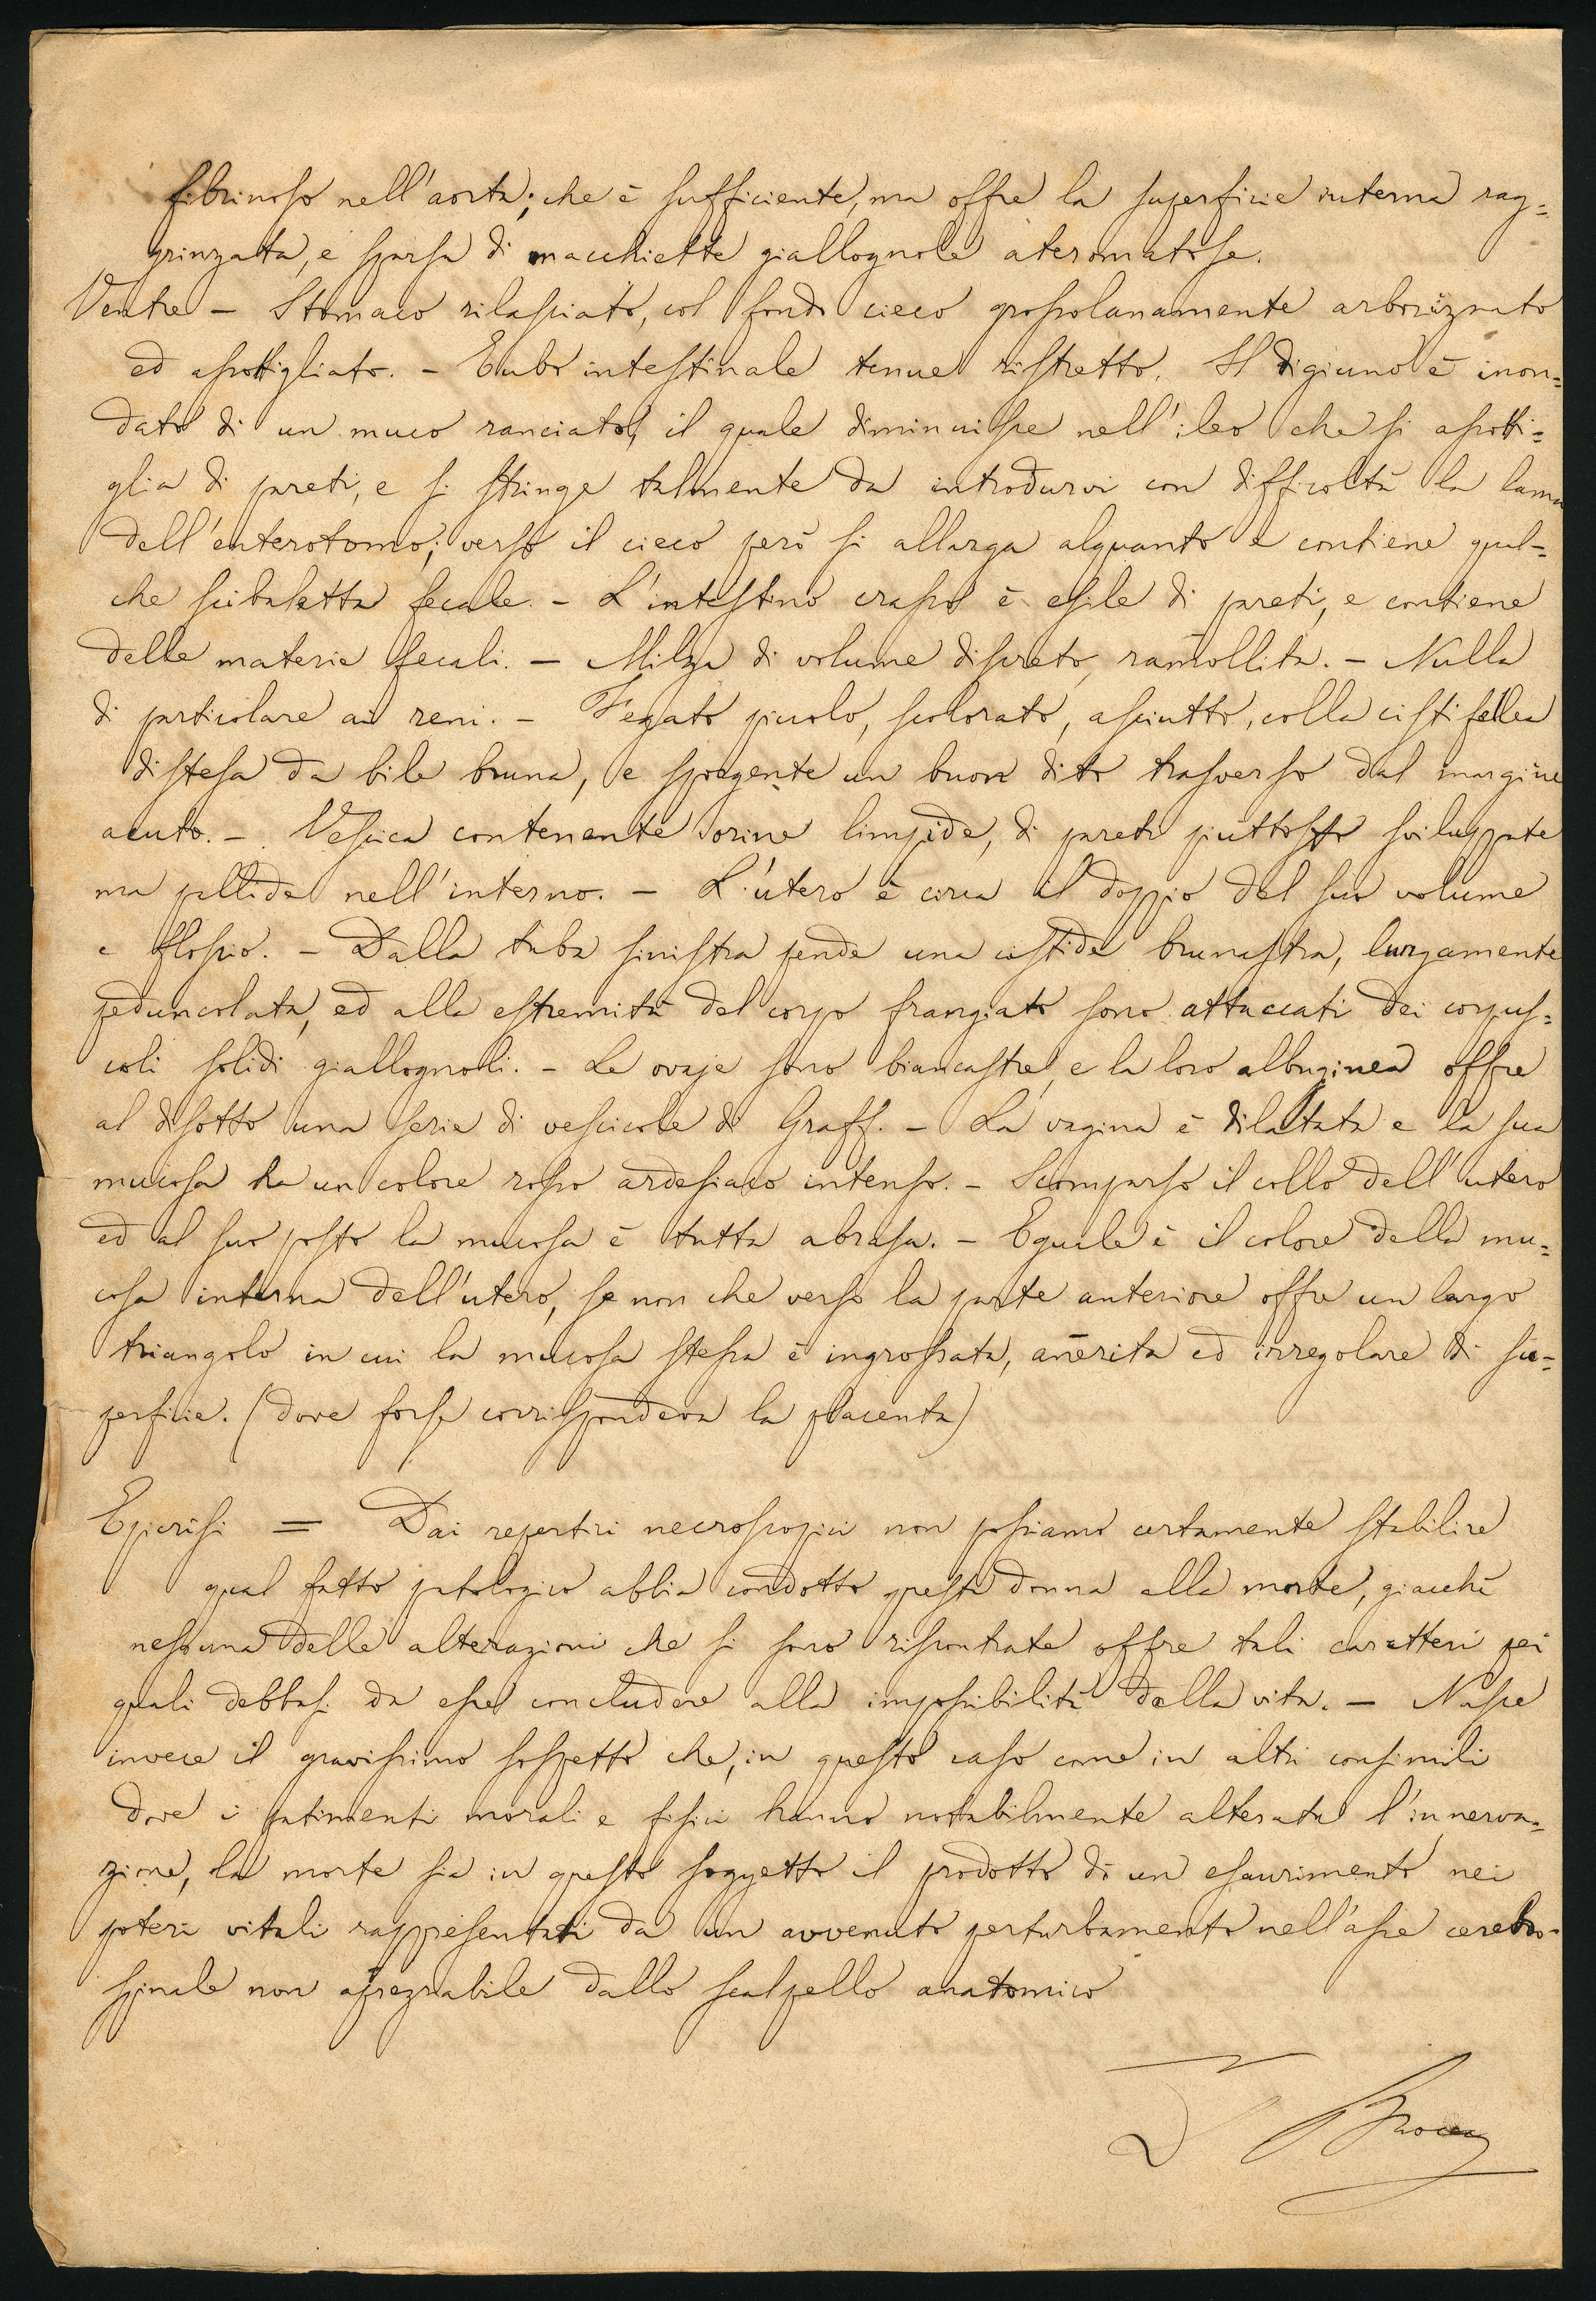 fibrinoso nell'aorta; che è sufficiente, ma offre la superficie interna rag=
grinzata, e sparsa di macchiette giallognole ateromatose.
Ventre - Stomaco rilasciato, col fondo cieco grossolanamente arborizzato
ed assottigliato. - Tubo intestinale tenue ristretto. Il digiuno è inon=
dato di un muco ranciato, il quale diminuisce nell'ileo che si assotti=
glia di pareti, e si stringe talmente da introdurvi con difficoltà la lama
dell'enterotomo; verso il cieco però si allarga alquanto e contiene qual=
che scibaletta fecale. - L'intestino crasso è esile di pareti, e contiene
delle materie fecali. - Milza di volume discreto, rammollita. - Nulla
di particolare ai reni. - Fegato piccolo, scolorato, asciutto, colla cisti fellea
distesa da bile bruna, e sporgente un buon dito trasverso dal margine
acuto. - Vescica contenente orine limpide, di pareti piuttosto sviluppate
ma pallide nell'interno. - L'utero è circa il doppio del suo volume
e floscio. - Dalla tuba sinistra pende una cistide brunastra, lungamente
peduncolata, ed alla estremità del corpo frangiato sono attaccati dei corpus=
coli solidi giallognoli. - Le ovaje sono biancastre, e la loro albuginea offre
al disotto una serie di vescicole di Graff. - La vagina è dilatata e la sua
mucosa ha un colore rosso ardesiaco intenso. - Scomparso il collo dell'utero
ed al suo posto la mucosa è tutta abrasa. - Eguale è il colore della mu=
cosa interna dell'utero, se non che verso la parte anteriore offre un largo
triangolo in cui la mucosa stessa è ingrossata, annerita ed irregolare di su=
perficie. (dove forse corrispondeva la placenta)
Epicrisi = Dai repertii necroscopici non possiamo certamente stabilire
qual fatto patologico abbia condotto questa donna alla morte, giacchè
nessuna delle alterazioni che si sono riscontrate offre tali caratteri pei
quali debbasi da esse concludere alla impossibilità della vita. - Nasce
invece il gravissimo sospetto che, in questo caso come in altri consimili
dove i patimenti morali e fisici hanno notabilmente alterata l'innerva=
zione, la morte sia in questo soggetto il prodotto di un esaurimento nei
poteri vitali rappresentati da un avvenuto perturbamento nell'asse cerebro-
spinale non apprezzabile dallo scalpello anatomico